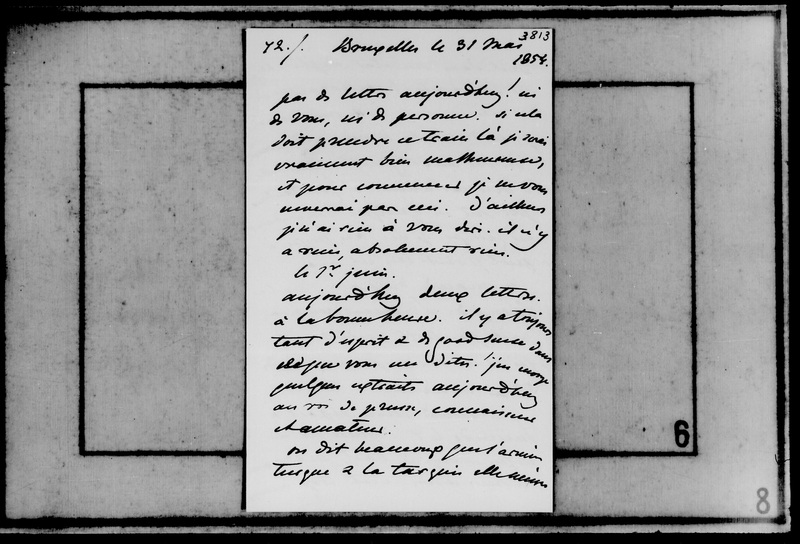 3813
72./. Bruxelles le 31 Mai
1854.
pas de lettres aujourd'huy! ni
de vous, ni de personne. si cela
doit prendre ce train là je serai
vraiment bien malheureuse,
et pour commencer je ne vous
enverrai pas ceci. D'ailleurs
je n'ai rien à vous dire. il n'y
a rien, absolument rien.
le 1er juin.
aujourd'huy deux lettres.
à la bonne heure. il y a toujours
tant d'esprit & de good sense dans
ce que vous me dites! j'en envoye
quelques extraits aujourd'huy
au roi de prusse, connaisseur
et amateur.
on dit beaucoup que l'armée
turque & la turquie elle même
6
8